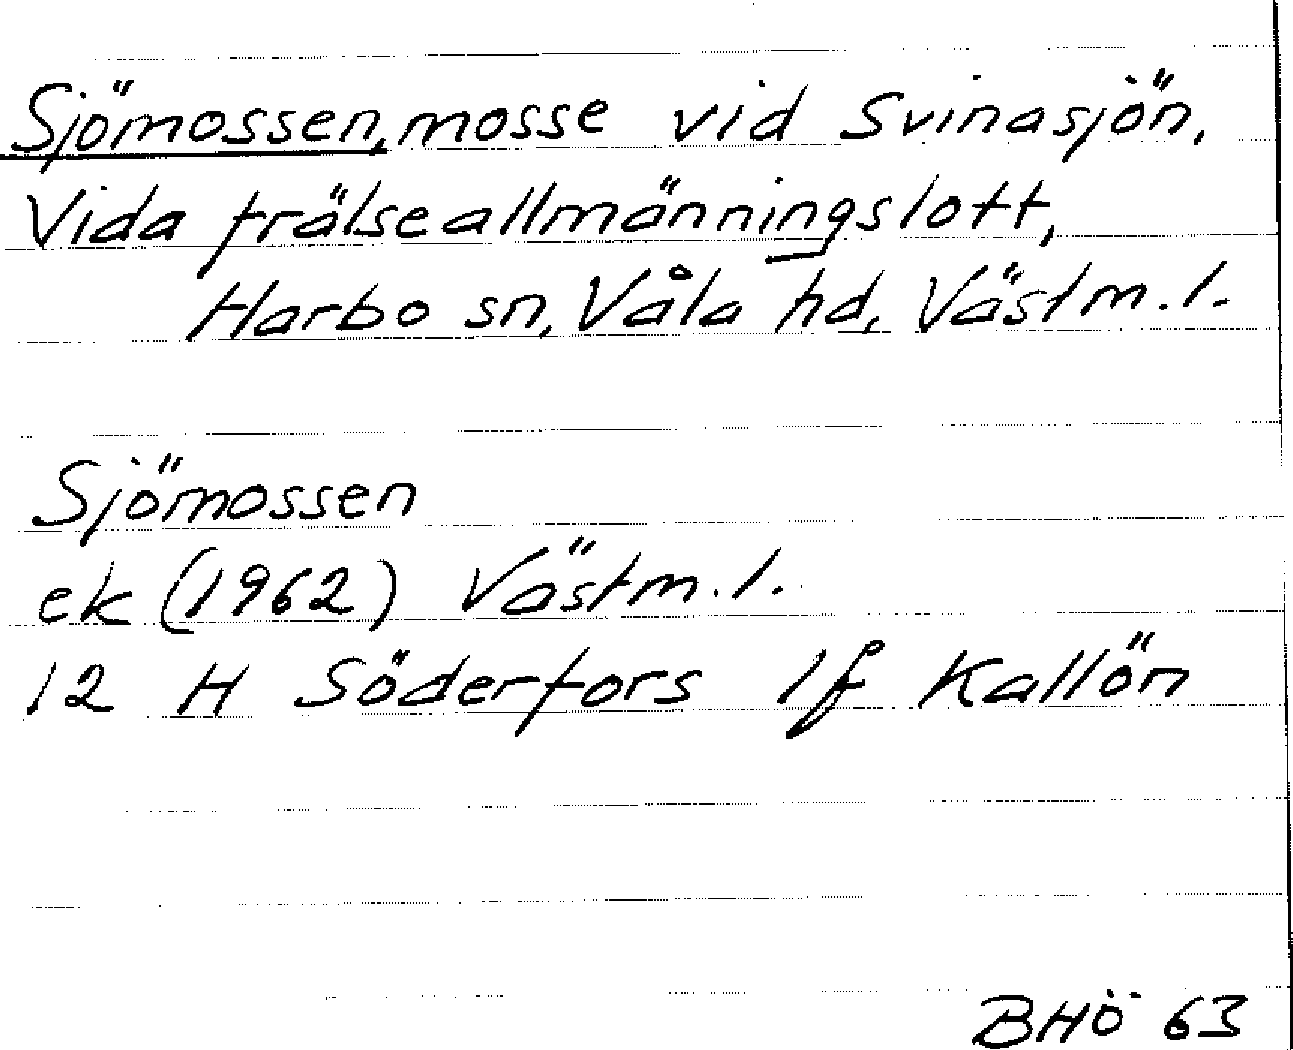 Sjömossen, mosse vid Svinasjön,
Vida frälseallmänningslott,
Harbo sn, Våla hd, Västm. l.
Sjömossen
ek (1962) Västm. l.
12 H Söderfors 1f Kallön
BHÖ 63